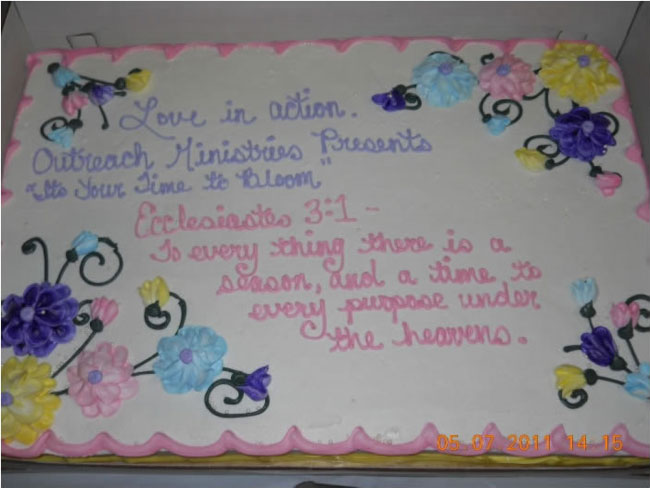 Love in action.
Outreach Ministries Presents
"Its Your Time to Bloom"
Ecclesiastes 3:1 -
To every thing there is a
season, and a time to
every purpose under
the heavens.
05.07.2011 14:15